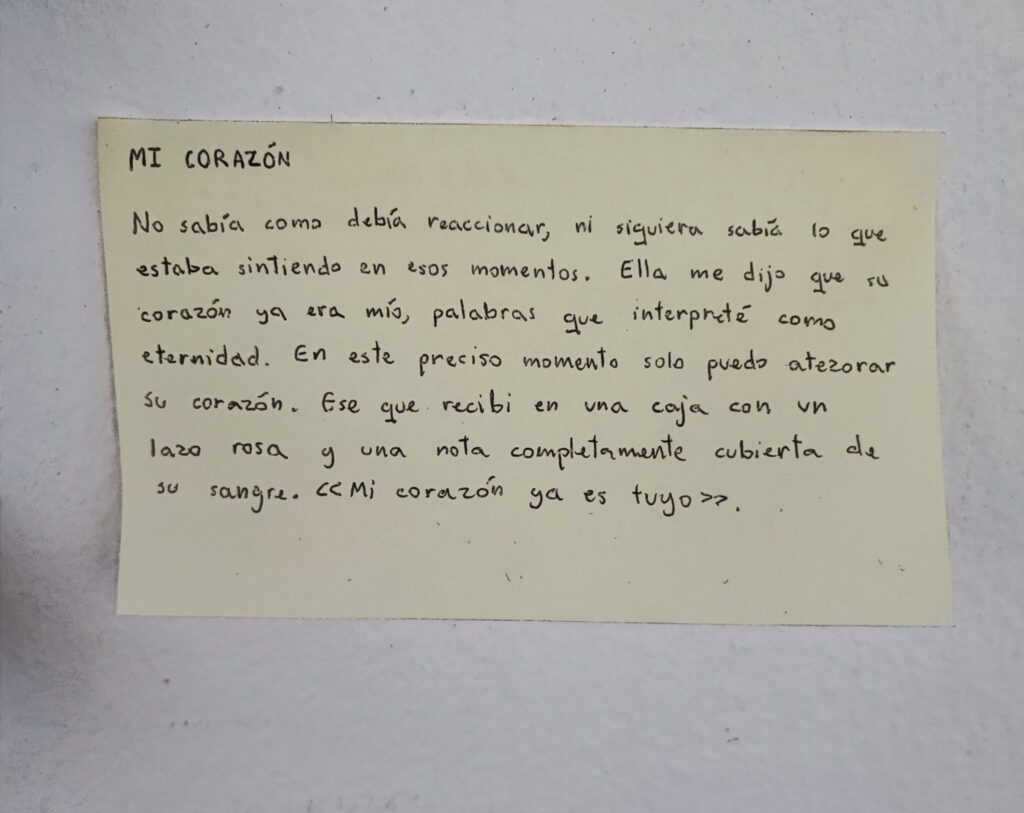 MI CORAZÓN
No sabía como debía reaccionar, ni siquiera sabía lo que
estaba sintiendo en esos momentos. Ella me dijo que su
corazón ya era mío, palabras que interpreté como
eternidad. En este preciso momento solo puedo atezorar
su corazón. Ese que recibi en una caja con un
lazo rosa y una nota completamente cubierta de
su sangre. <<Mi corazón ya es tuyo>>.